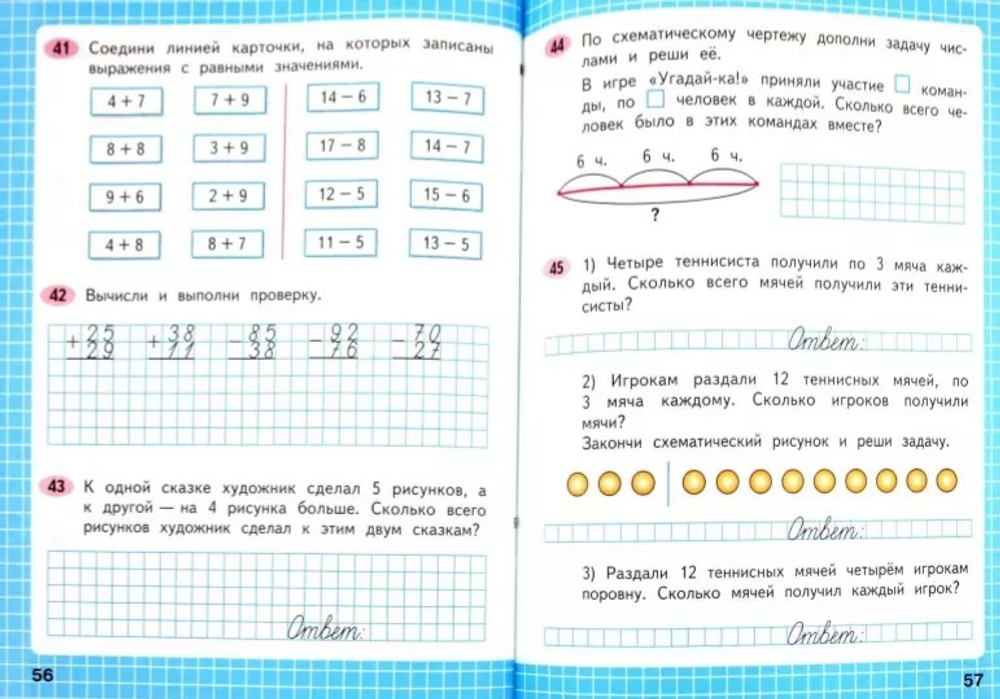 41 Соедини линией карточки, на которых записаны
выражения с равными значениями.
4 + 7 7 + 9 14 − 6 13 − 7
8 + 8 3 + 9 17 − 8 14 − 7
9 + 6 2 + 9 12 − 5 15 − 6
4 + 8 8 + 7 11 − 5 13 − 5
42 Вычисли и выполни проверку.
+ 25 + 38 − 85 − 92 − 70
29 11 38 76 27
43 К одной сказке художник сделал 5 рисунков, а
к другой — на 4 рисунка больше. Сколько всего
рисунков художник сделал к этим двум сказкам?
Ответ:
56
44 По схематическому чертежу дополни задачу чис-
лами и реши её.
В игре «Угадай-ка!» приняли участие коман-
ды, по человек в каждой. Сколько всего че-
ловек было в этих командах вместе?
6 ч. 6 ч. 6 ч.
?
45 1) Четыре теннисиста получили по 3 мяча каж-
дый. Сколько всего мячей получили эти тенни-
систы?
Ответ:
2) Игрокам раздали 12 теннисных мячей, по
3 мяча каждому. Сколько игроков получили
мячи?
Закончи схематический рисунок и реши задачу.
Ответ:
3) Раздали 12 теннисных мячей четырём игрокам
поровну. Сколько мячей получил каждый игрок?
Ответ:
57